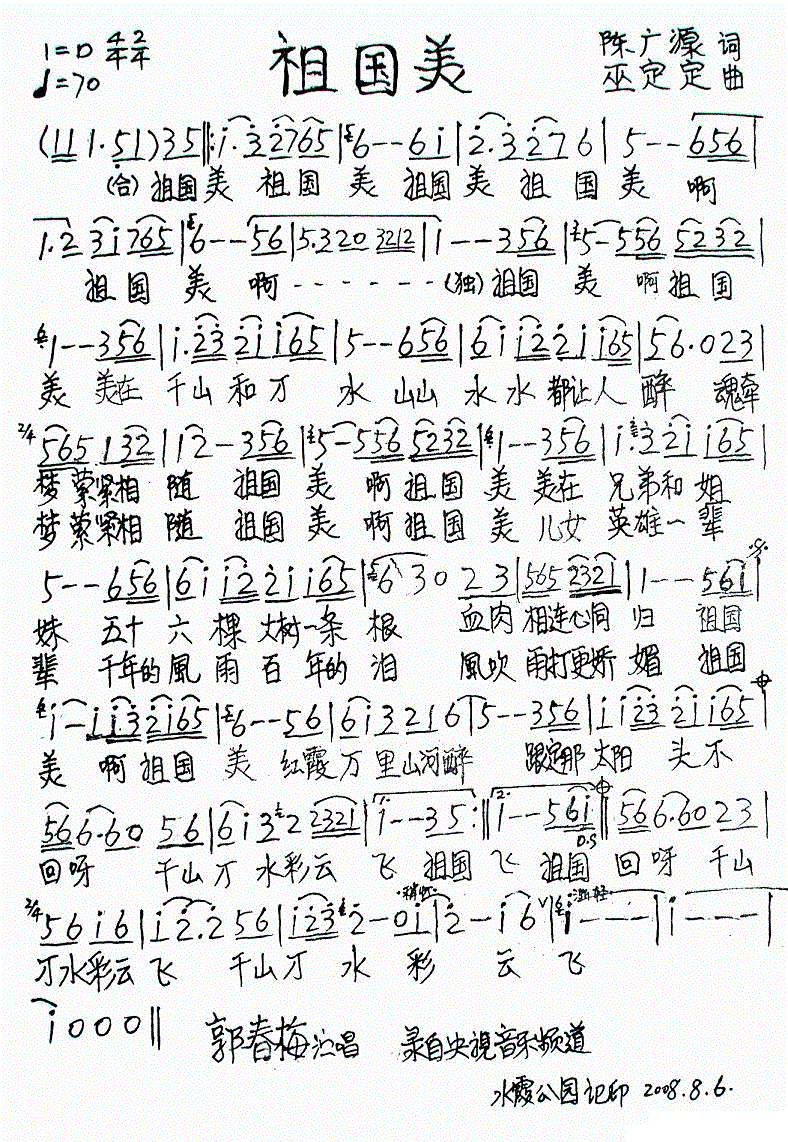 1=D 4/4 2/4
祖国美
陈广源 词
♩=70
巫定定 曲
(11 1·51)35|:i·3 2765|6--6i|2·3 276|5--656|
(合)祖国美 祖国美 祖国美 祖国美 啊
1.2 3i765|6--56|5.320 3212|1--356|5-556 5232|
祖国美 啊······(独)祖国 美 啊祖国
1--356|i.23 2ii65|5--656|6i i22ii65|56.023|
美 美在 千山和万 水 山山水水都让人醉 魂牵
2/4 565 132|12-356|5-556 5232|1--356|i.32i i65|
梦萦紧相随 祖国美 啊祖国美 美在 兄弟和姐
梦萦紧相随 祖国美 啊祖国美 儿女 英雄一辈
5--656|6i i22ii65|6 30 23|565 2321|1--56i|
妹 五十六棵大树一条根 血肉相连心同归 祖国
辈 千年的風雨百年的泪 風吹雨打更娇媚 祖国
i-ii32i65|6--56|6i3216|5--356|i i23 2ii65|
美 啊祖国美 红霞万里山河醉 跟定那太阳头不
566.6056|6i322321|1.i--35:|2.i--56i|566.6023|
D.S
回呀 千山万水彩云飞 祖国飞 祖国 回呀 千山
2/4 56i6|i2.256|i232-0i|2-i6|i---|i---|
万水彩云飞 千山万水彩云飞
i000||
郭春梅演唱 录自央視音乐频道
水霞公园记印 2008.8.6.